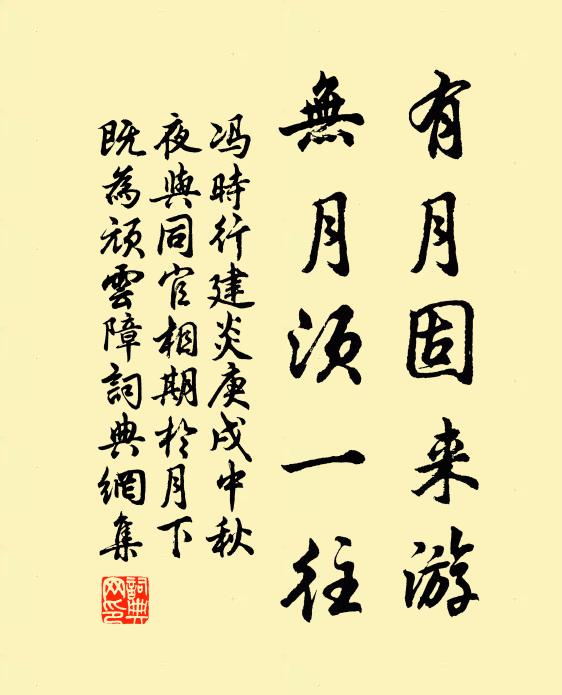 有月固来游
無月须一往
冯時行建炎庚戌中秋
夜與同官相期於月下
既為頑雲障詞典網集
詞典
网印